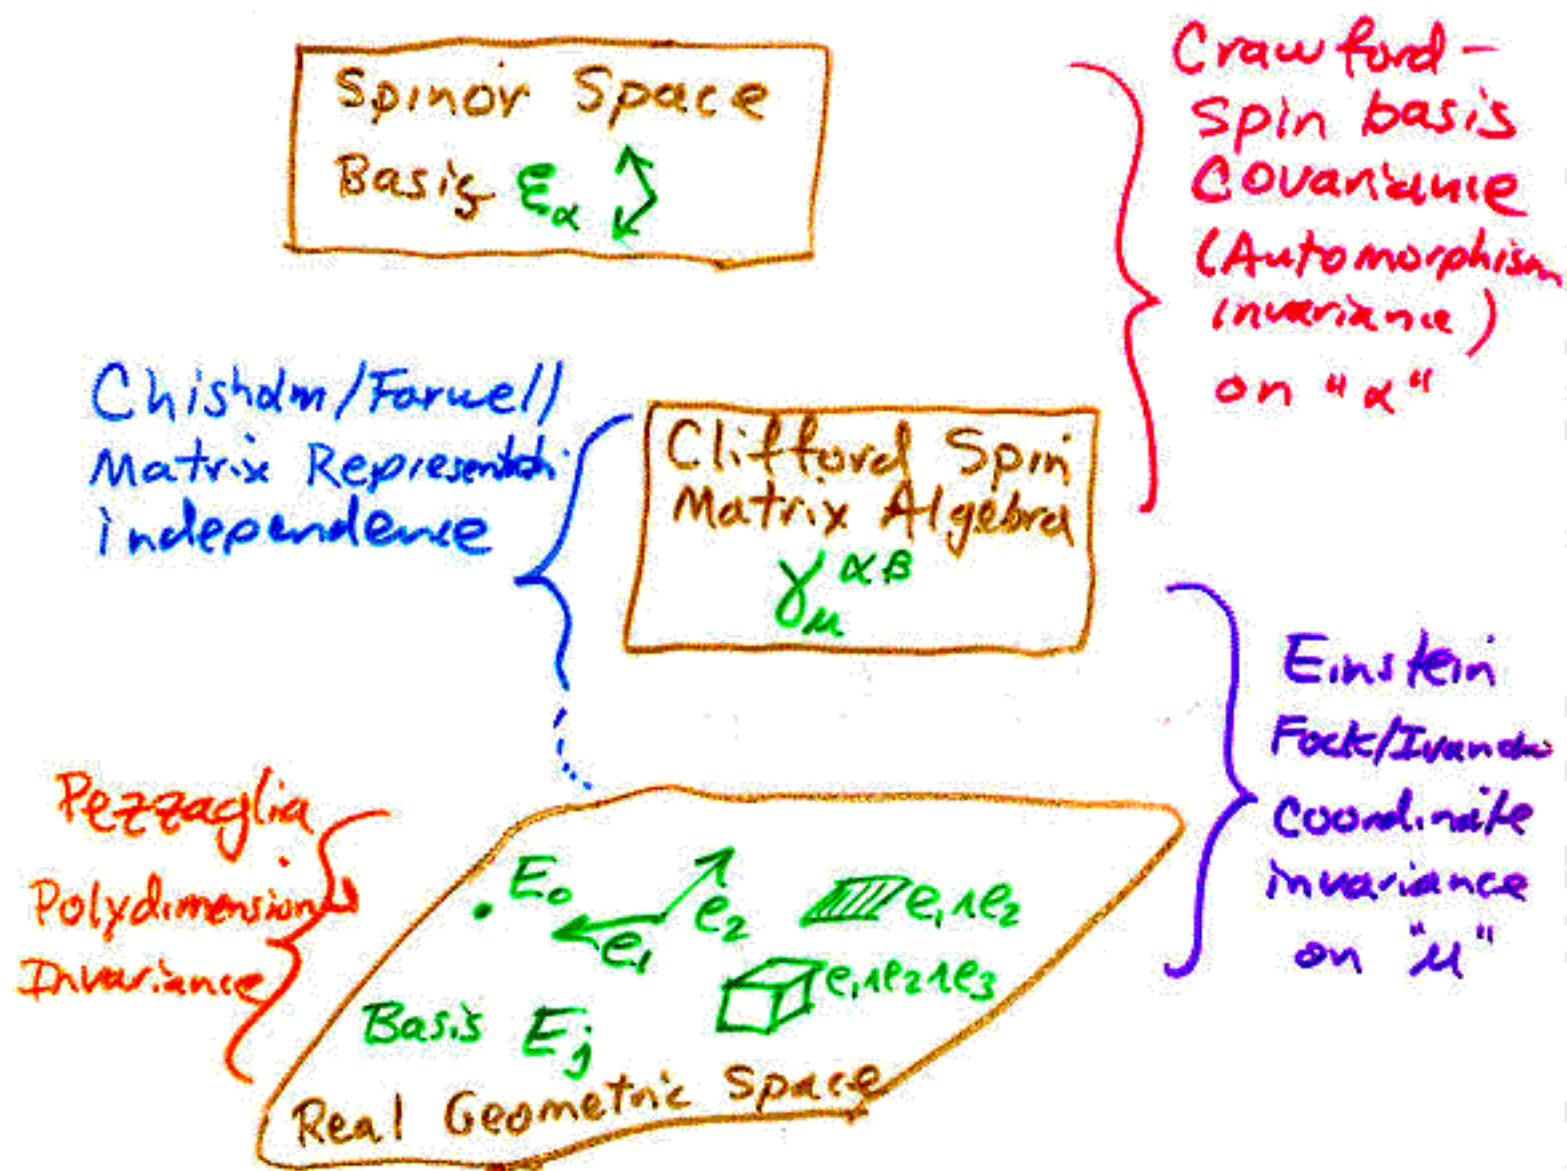 Spinor Space
Basis ξα
Crawford-
Spin basis
Covariance
(Automorphism
invariance)
on "α"
Chisholm/Farwell
Matrix Representatn.
independence
Clifford Spin
Matrix Algebra
γμ^αβ
Einstein
Fock/Ivanenko
Coordinate
invariance
on "μ"
Pezzaglia
Polydimensional
Invariance
E₀
e₁
e₂
e₁∧e₂
e₁∧e₂∧e₃
Basis Eⱼ
Real Geometric Space